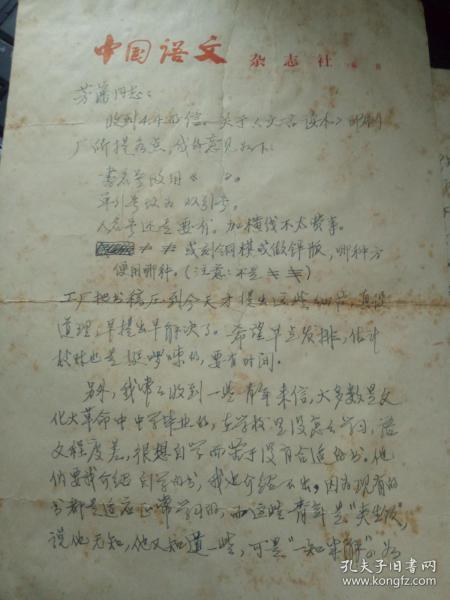 中国语文 杂志社
同志：
收到 的信。关于《文言读本》印刷
厂所提各点，我的意见如下：
书名号改用《 》。
单引号改为双引号。
人名号还是要有。加横线不太费事。
≠ ≠ 或刻铜模或做锌版，哪种方
便用哪种。（注意：不是 ）
工厂把书稿压到今天才提出这些细节，真没
道理，早提出早解决了。希望早点发排，估计
校对也是挺啰嗦的，要有时间。
另外，我常常收到一些青年来信，大多数是文
化大革命中中学毕业的，在学校里没怎么学习，语
文程度差，很想自学而苦于没有合适的书。他
们要我介绍自学的书，我也介绍不出，因为现有的
书都是适应正常学习的，而这些青年是“夹生饭”，
说他无知，他又知道一些，可是“一知半解”。为
孔夫子旧书网